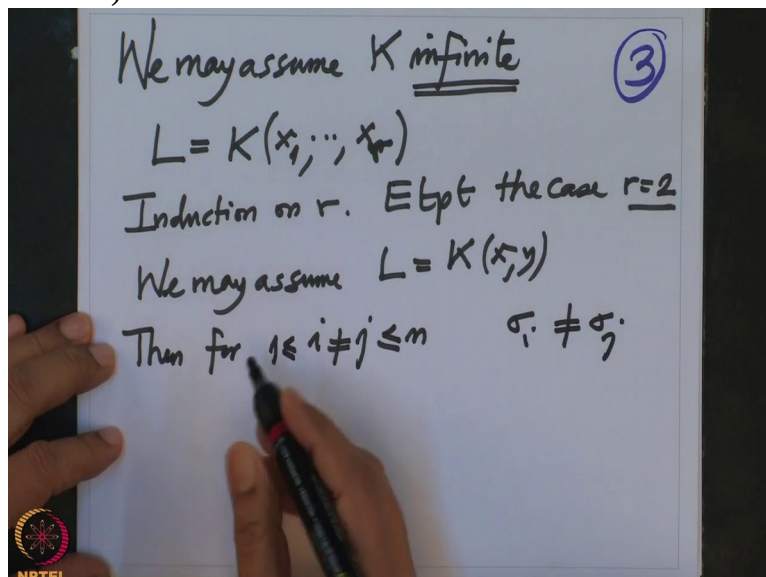 We may assume K infinite
3
L = K(x₁, ..., xᵣ)
Induction on r. Etpt the case r=2
We may assume L = K(x,y)
Then for 1 ≤ i ≠ j ≤ n σᵢ ≠ σⱼ
NPTEL